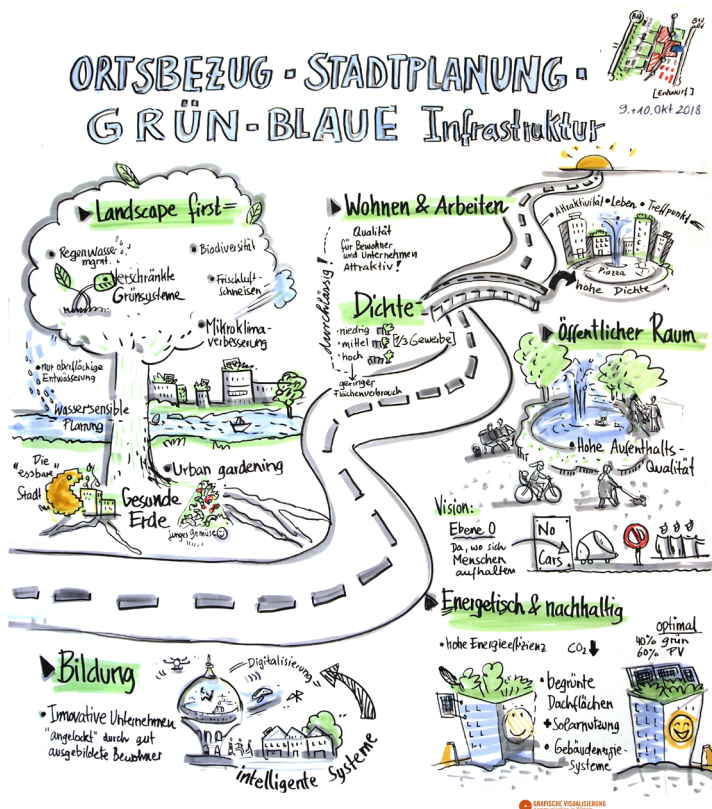 ORTSBEZUG · STADTPLANUNG ·
GRÜN-BLAUE Infrastruktur
[Entwurf]
9.+10. Okt 2018
Landscape first=
Regenwasser
mgmt.
Biodiversität
Verschränkte
Grünsysteme
Frischluft-
schneisen
Mikroklima-
verbesserung
nur oberflächige
Entwässerung
Wassersensible
Planung
Die
"essbare"
Stadt
Gesunde
Erde
Urban gardening
junges Gemüse
Wohnen & Arbeiten
Qualität
für Bewohner
und Unternehmen
Attraktiv!
durchlässig!
Dichte
· niedrig
· mittel
· hoch
[1/3 Gewerbe]
geringer
Flächenverbrauch
· Attraktivität · Leben · Treffpunkt
Piazza
hohe Dichte
Öffentlicher Raum
· Hohe Aufenthalts-
Qualität
Vision:
Ebene 0
Da, wo sich
Menschen
aufhalten
No
Cars
Energetisch & nachhaltig
· hohe Energieeffizienz
CO2
optimal
40% grün
60% PV
· begrünte
Dachflächen
+ Solarnutzung
· Gebäudenergie-
Systeme
Bildung
· Innovative Unternehmen
"angelockt" durch gut
ausgebildete Bewohner
Digitalisierung
intelligente Systeme
GRAFISCHE VISUALISIERUNG